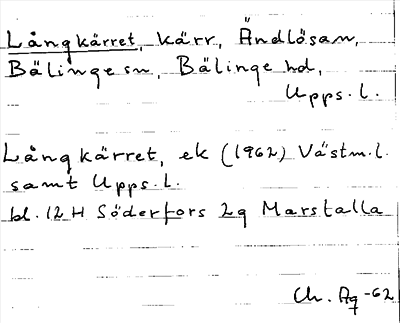 Långkärret, kärr, Ändlösan,
Bälinge sn, Bälinge hd,
Upps. l.
Långkärret, ek (1962) Västm. l.
samt Upps. l.
bl. 12 H Söderfors 2g Marstalla
Ch. Ag -62